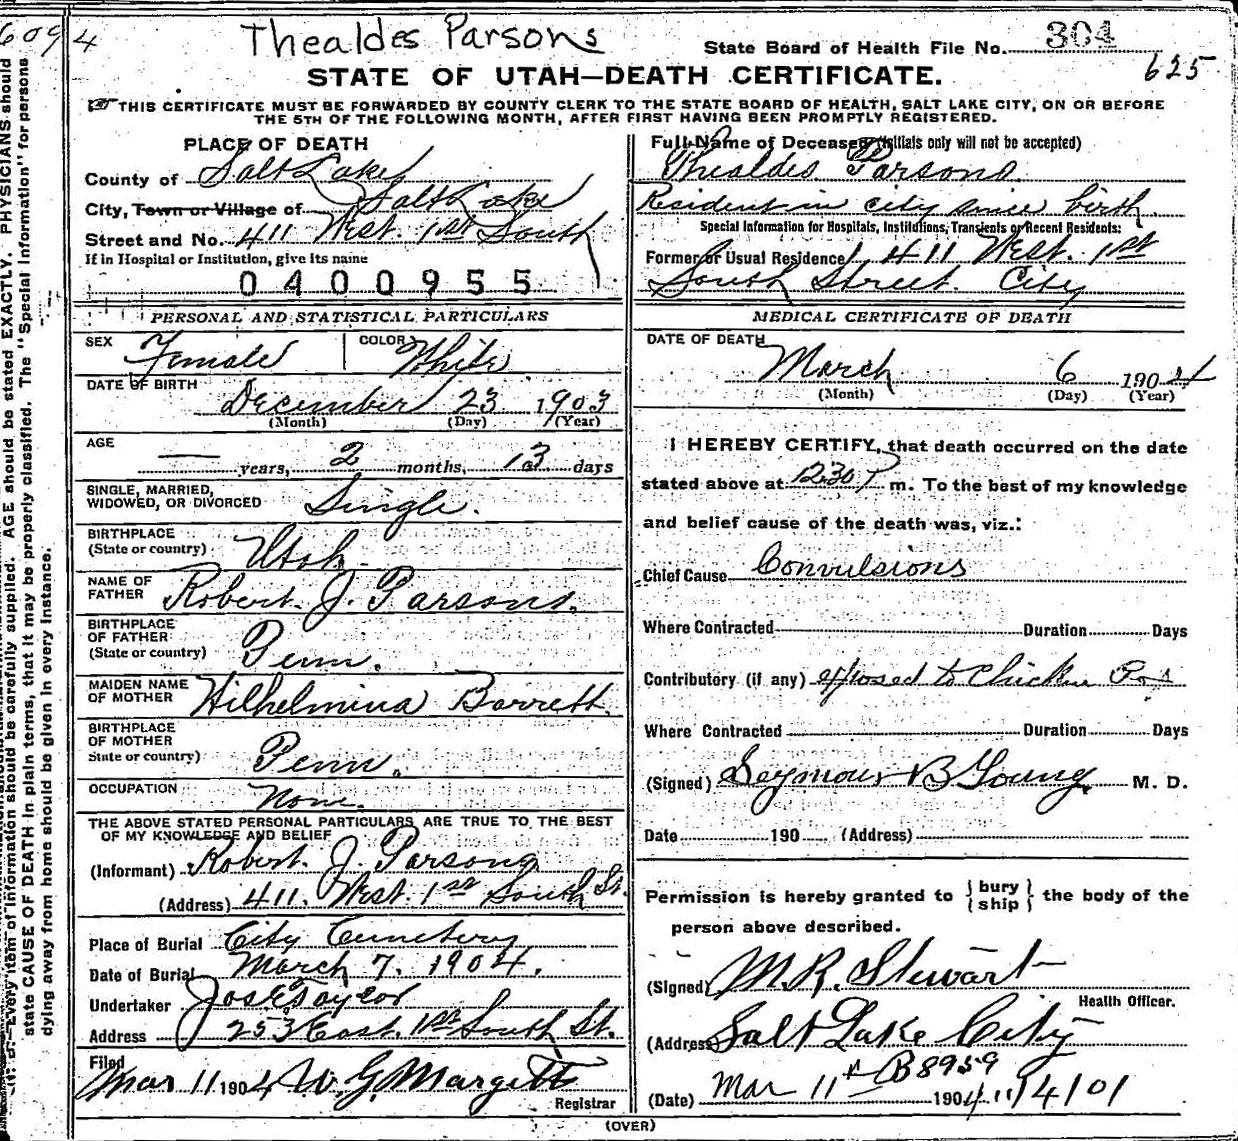 6094
Thealdes Parsons
State Board of Health File No. 304
625
STATE OF UTAH—DEATH CERTIFICATE.
THIS CERTIFICATE MUST BE FORWARDED BY COUNTY CLERK TO THE STATE BOARD OF HEALTH, SALT LAKE CITY, ON OR BEFORE
THE 5TH OF THE FOLLOWING MONTH, AFTER FIRST HAVING BEEN PROMPTLY REGISTERED.
PLACE OF DEATH
County of Salt Lake
City, Town or Village of Salt Lake
Street and No. 411 West. 1st South
If in Hospital or Institution, give its name
0400955
PERSONAL AND STATISTICAL PARTICULARS
SEX Female COLOR White
DATE OF BIRTH
December 23 1903
(Month) (Day) (Year)
AGE
— years, 2 months, 13 days
SINGLE, MARRIED,
WIDOWED, OR DIVORCED Single.
BIRTHPLACE
(State or country) Utah.
NAME OF
FATHER Robert. J. Parsons.
BIRTHPLACE
OF FATHER
(State or country) Penn.
MAIDEN NAME
OF MOTHER Wilhelmina Barrett.
BIRTHPLACE
OF MOTHER
State or country) Penn.
OCCUPATION None.
THE ABOVE STATED PERSONAL PARTICULARS ARE TRUE TO THE BEST
OF MY KNOWLEDGE AND BELIEF
(Informant) Robert. J. Parsons
(Address) 411. West. 1st South St.
Place of Burial City Cemetery
Date of Burial March 7. 1904.
Undertaker Jos E Taylor
Address 253 East. 1st South St.
Filed
Mar 11 1904 W. G. Margetts
Registrar
Full Name of Deceased (Initials only will not be accepted)
Thealdes Parsons
Resident in city since birth.
Special Information for Hospitals, Institutions, Transients or Recent Residents:
Former or Usual Residence 411 West. 1st
South Street. City
MEDICAL CERTIFICATE OF DEATH
DATE OF DEATH
March 6 1904
(Month) (Day) (Year)
I HEREBY CERTIFY, that death occurred on the date
stated above at 1230 P m. To the best of my knowledge
and belief cause of the death was, viz.:
Chief Cause Convulsions
Where Contracted Duration Days
Contributory (if any) exposed to Chicken Pox
Where Contracted Duration Days
(Signed) Seymour B Young. M. D.
Date 190 (Address)
Permission is hereby granted to {bury
ship} the body of the
person above described.
(Signed) M. R. Stewart
Health Officer.
(Address) Salt Lake City
B8959
(Date) Mar 11 1904 11/4/01
(OVER)
N. B.—Every item of information should be carefully supplied. AGE should be stated EXACTLY. PHYSICIANS should
state CAUSE OF DEATH in plain terms, that it may be properly classified. The "Special Information" for persons
dying away from home should be given in every instance.